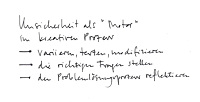 Unsicherheit als "Motor"
im kreativen Prozess
→ variieren, testen, modifizieren
→ die richtigen Fragen stellen
→ den Problemlösungsprozess reflektieren